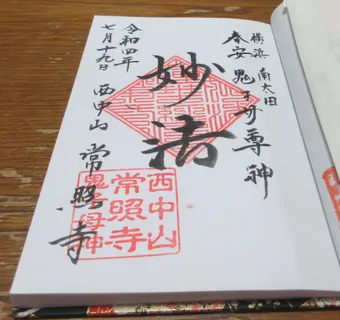 横浜 南太田
奉安 鬼子母尊神
妙法
令和四年
七月十九日 西中山 常照寺
西中山
常照寺
鬼子母神